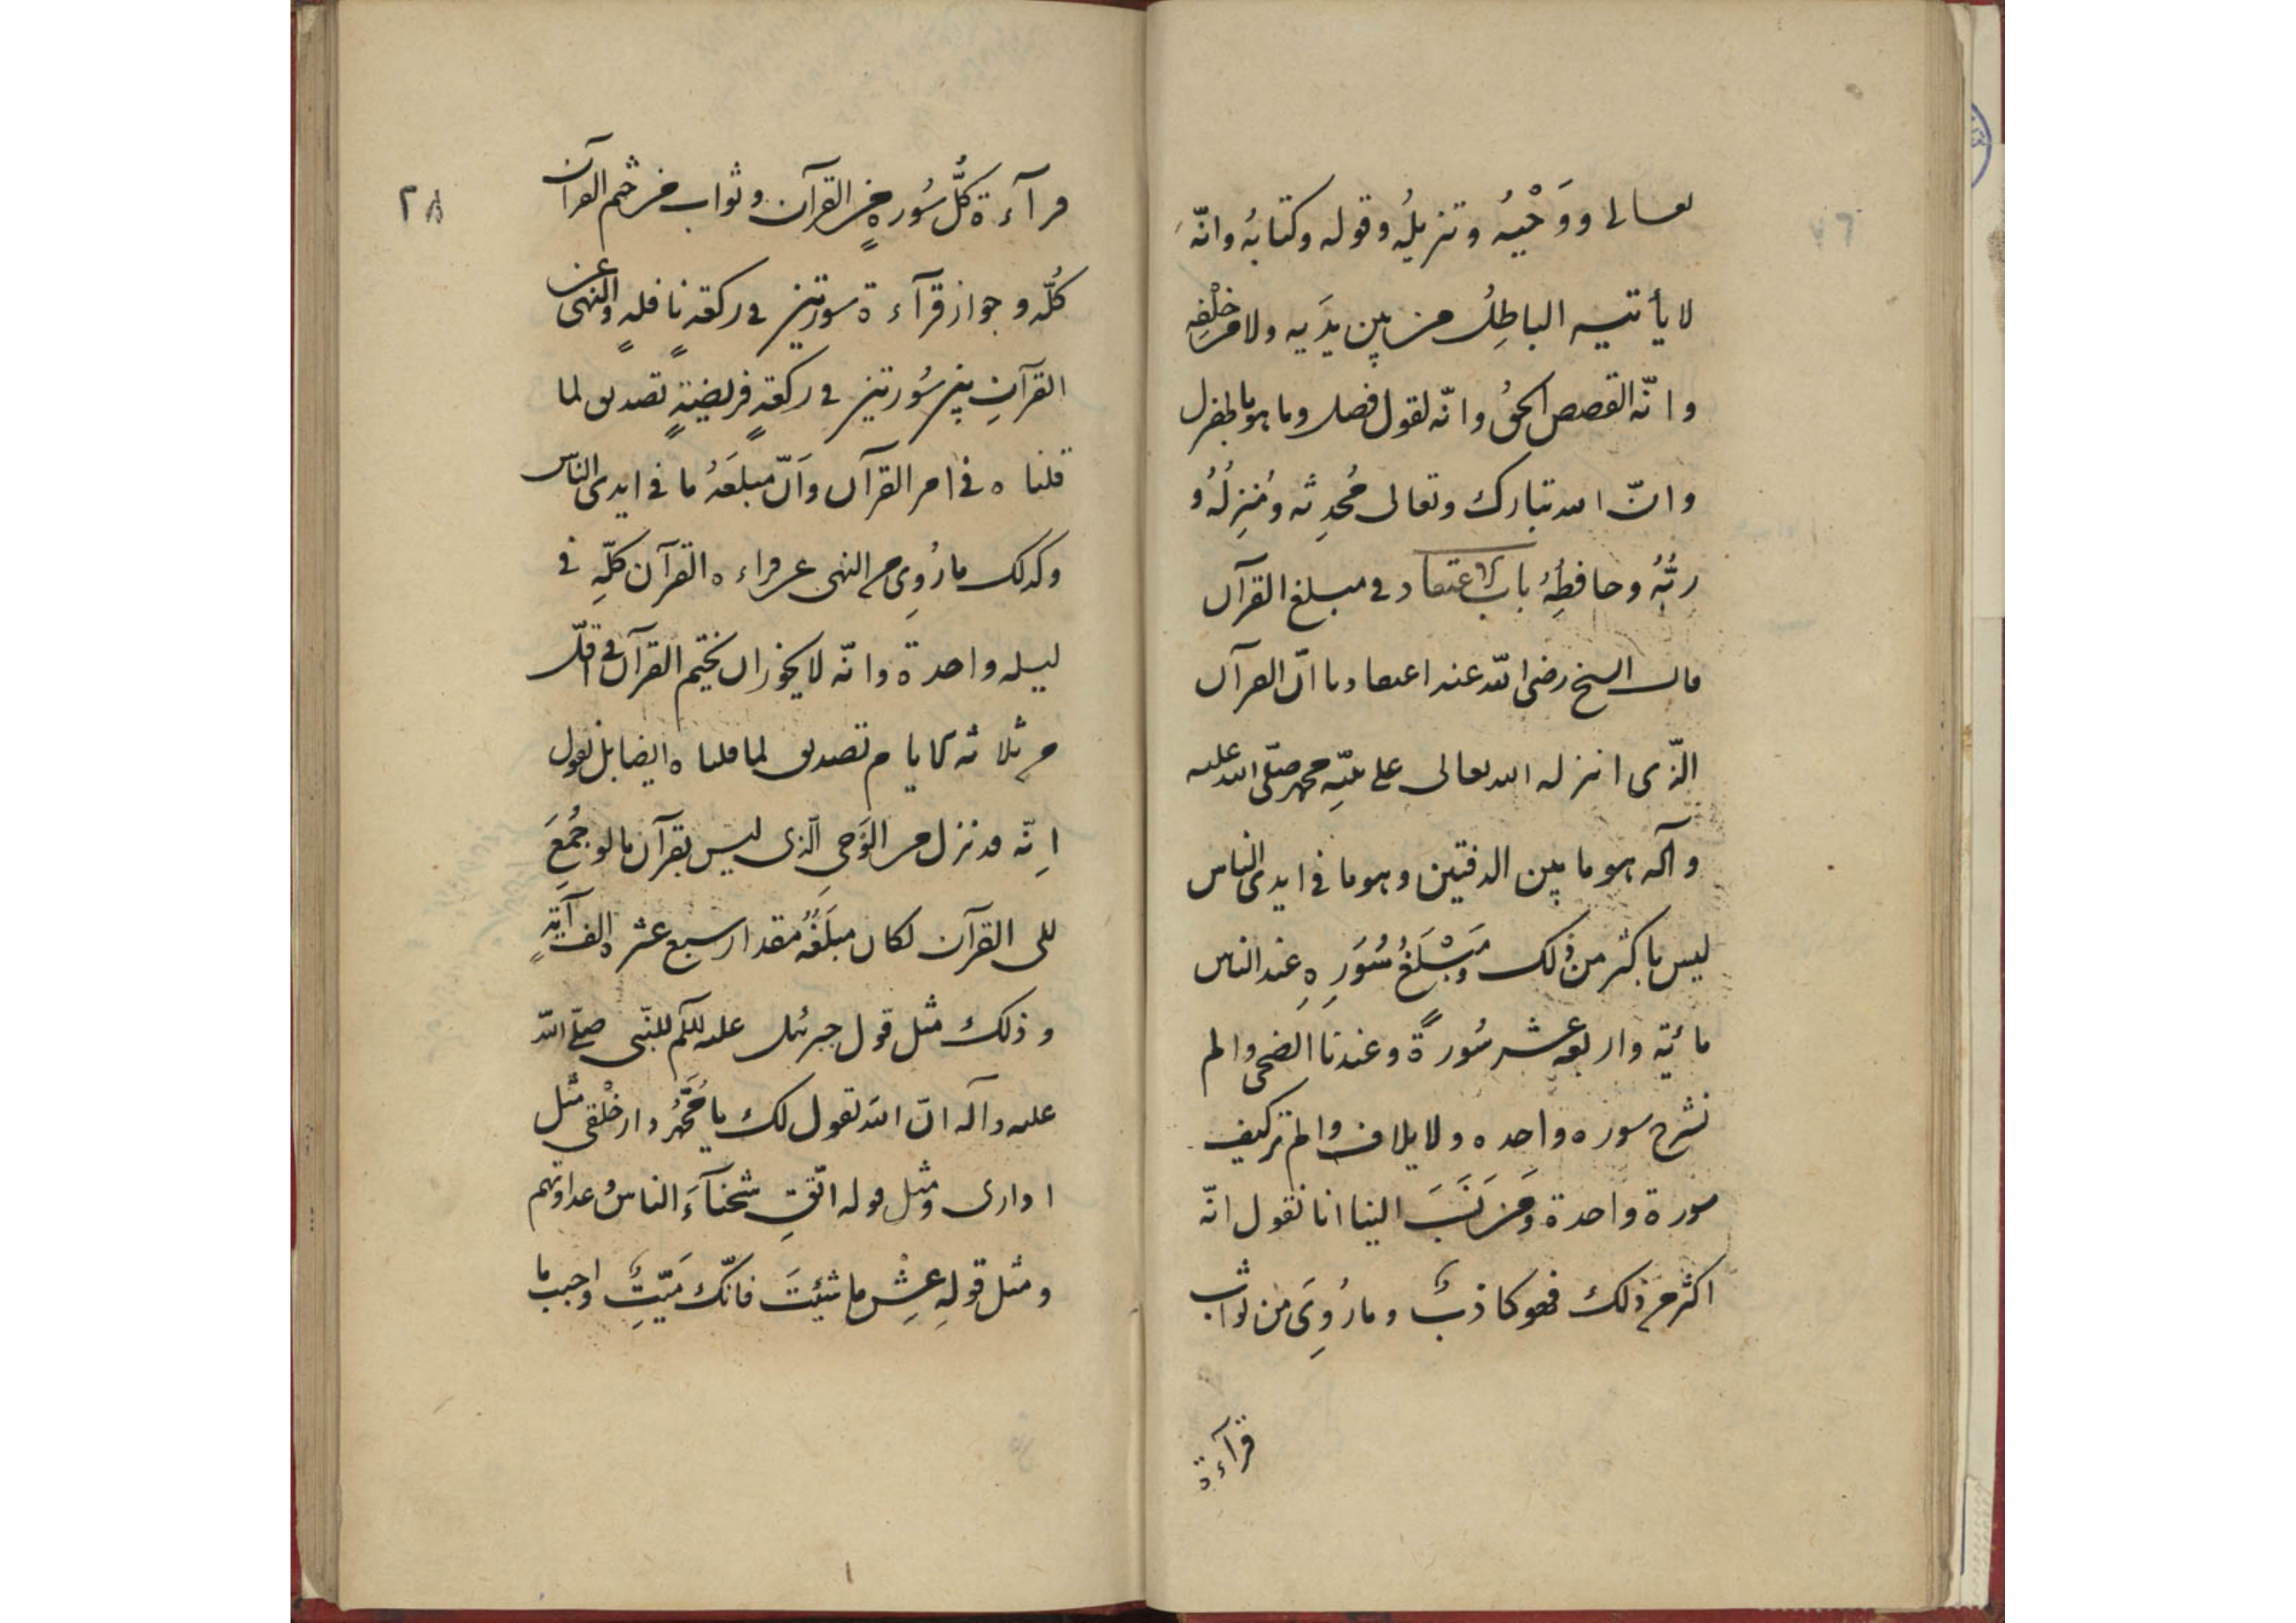 تعالى ووَحْيُه وتنزيلُه وقوله وكتابُه وانّه
لا يأتيه الباطِلُ من بين يَدَيه ولا من خَلْفِه
وانّه القصص الحقُ وانّه لقول فصل وما هو بالهزل
وانّ الله تبارك وتعالى مُحدِثه ومُنزِلُهُ و
ربُّهُ وحافظِهُ باب الاعتقاد فى مبلغ القرآن
قال الشيخ رضى الله عنه اعتقادنا انّ القرآن
الّذى انزله الله تعالى على نبيّه محمد صلّى الله عليه
وآله هو ما بين الدفتين وهو ما فى ايدى الناس
ليس باكثر من ذلك ومَبْلَغُ سُوَرِهِ عند الناس
مائية واربعه عشر سُورةً وعندنا الضحى والم
نشرح سوره واحده ولايلاف والم تر كيف
سورة واحدة ومن نَسَبَ الينا انا نقول انّه
اكثر من ذلك فهو كاذبٌ وما رُوِىَ من ثواب
قرآءة
٢٨
قرآءة كُلُّ سُورةٍ من القرآن وثواب من ختم القرآن
كُلّه وجواز قرآءة سورتين فى ركعةٍ نافلهٍ والنهى عن
القرآنِ بين سُورتين فى ركعةٍ فريضيةٍ تصديق لما
قلناه فى امر القرآن وَانّ مبلَغَهُ ما فى ايدى الناس
وكذلك ما رُوِى من النهى عن قراءه القرآن كلّهِ فى
ليله واحدة وانّه لا يجُوز ان يختم القرآن فى اقلّ
من ثلاثه ايام تصديق لما قلناه ايضا بل نقول
اِنّه قد نزل من الوَحىِ الّذى ليس بقرآن ما لو جُمِعَ
الى القرآن لكان مبلَغُهُ مقدار سبع عشره الف آيةٍ
وذلك مثل قول جبرئيل عليه للنّبى صلّى الله
عليه وآله انّ الله تقول لك يا مُحَمَّدُ دار خلْقى مثل
ا دارى ومثل قوله اتّقِ شحنآءَ الناس وعداوتهم
ومثل قولِه عِشْ ما شئتَ فانّك مَيّتٌ واحبب ما